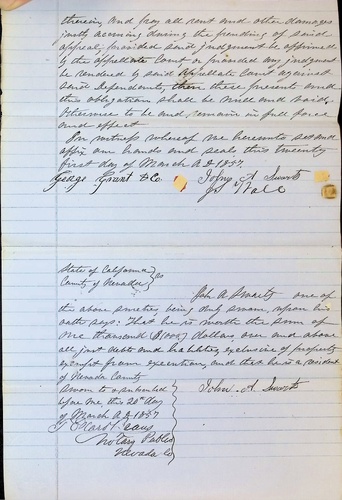 therein and pay all rent and other damages
justly accruing during the pending of said
appeal, provided said judgment be affirmed
by the appellate Court or provided any judgment
be rendered by said Appellate Court against
said Defendants, then these presents and
this obligation shall be null and void.
Otherwise to be and remain in full force
and effect.
In witness whereof we hereunto set and
affix our hands and seals this twenty
first day of March A D 1857.
George Grant & Co. John A Swarts
State of California
County of Nevada
John A Swartz one of
the above sureties being duly sworn, upon his
oath says: That he is worth the sum of
one thousand ($1000) dollars over and above
all just debts and liabilities, exclusive of property
exempt from execution, and that he is a resident
of Nevada County
Sworn to & subscribed John A. Swarts
before me this 20th day
of March A D 1857
Notary Public
Nevada Co